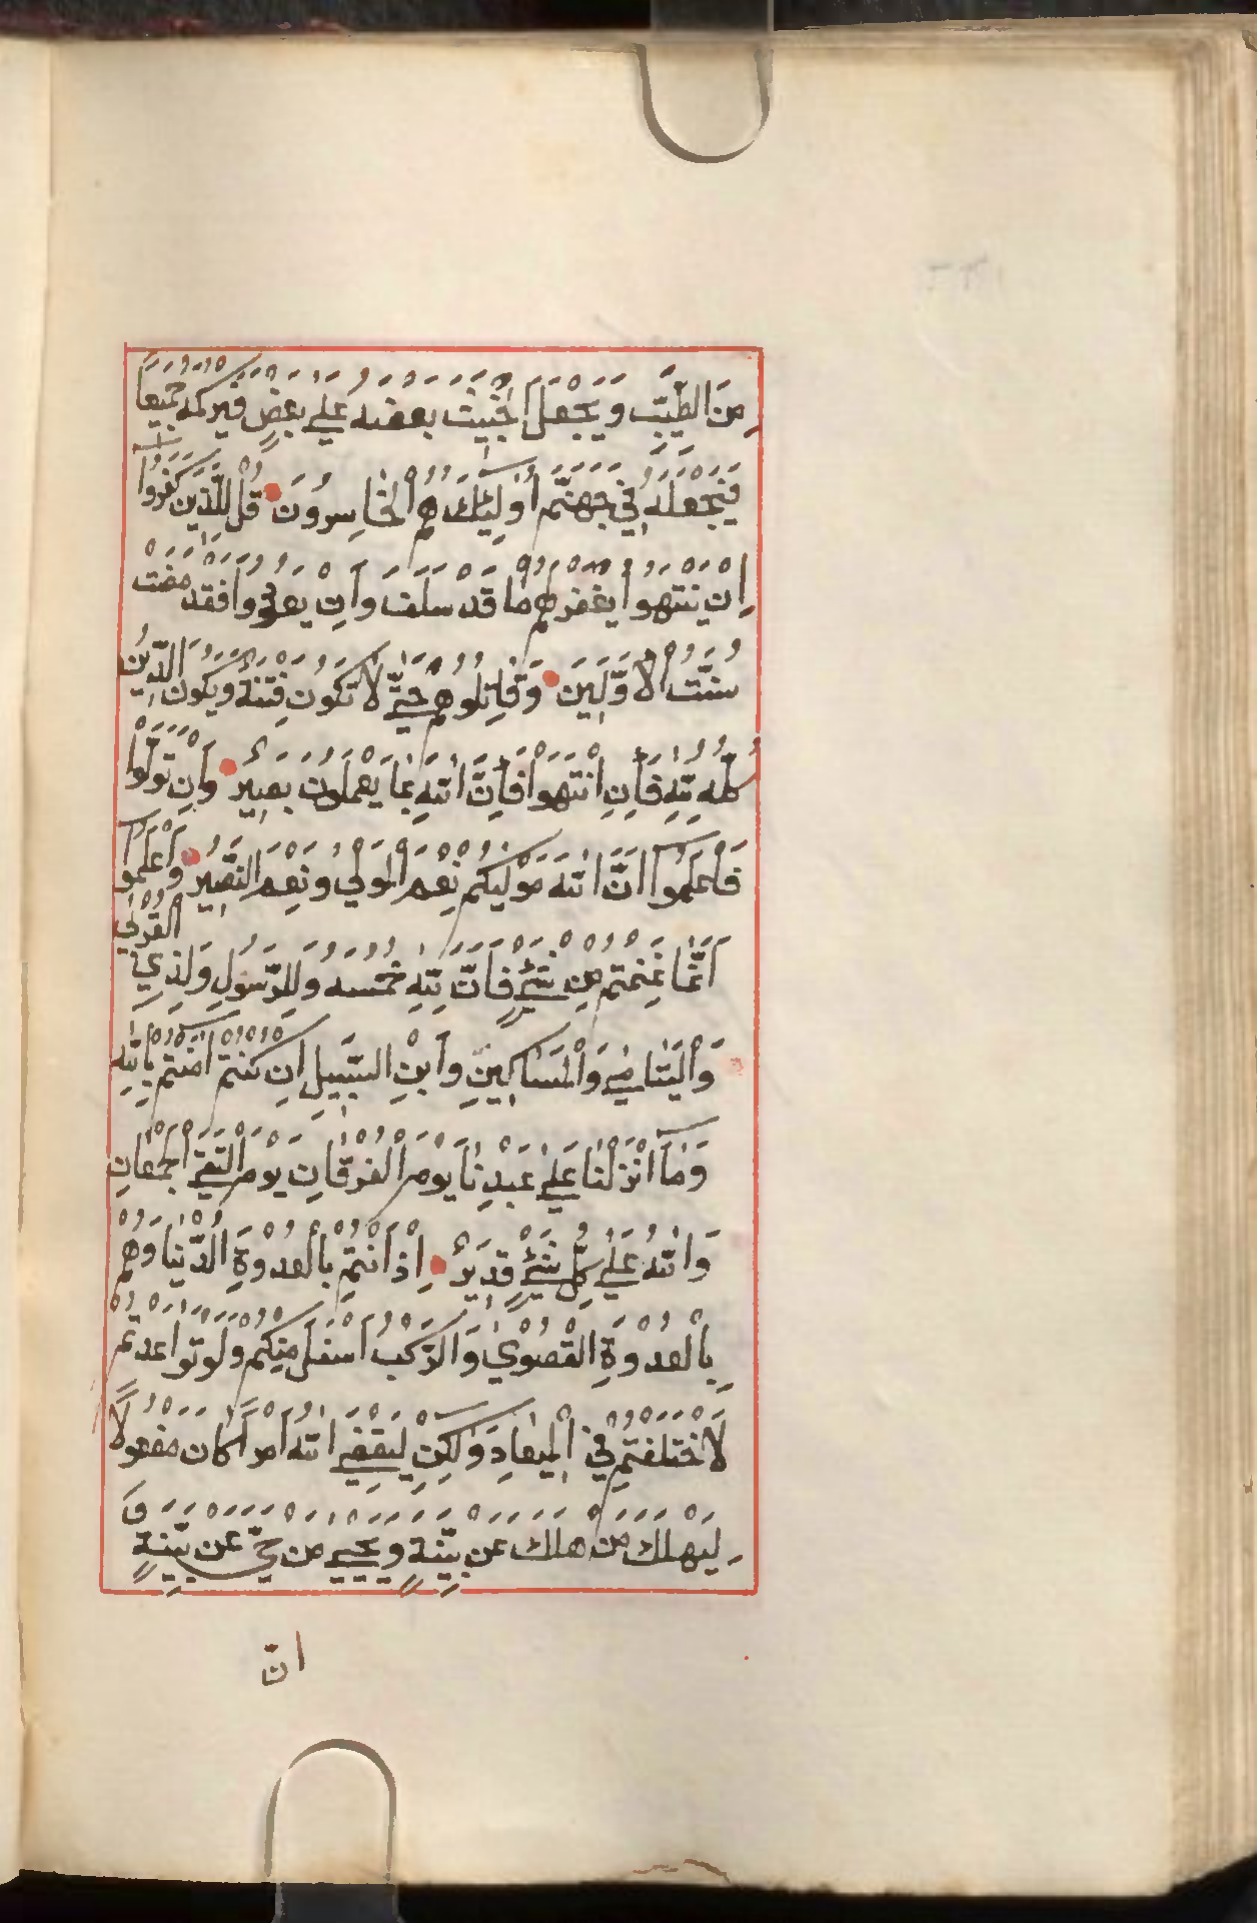 مِنَ الطَّيِّبِ وَيَجْعَلَ الْخَبِيثَ بَعْضَهُ عَلَىٰ بَعْضٍ فَيَرْكُمَهُ جَمِيعًا
فَيَجْعَلَهُ فِي جَهَنَّمَ أُولَٰئِكَ هُمُ الْخَاسِرُونَ قُلْ لِلَّذِينَ كَفَرُوا
إِنْ يَنْتَهُوا يُغْفَرْ لَهُمْ مَا قَدْ سَلَفَ وَإِنْ يَعُودُوا فَقَدْ مَضَتْ
سُنَّتُ الْأَوَّلِينَ وَقَاتِلُوهُمْ حَتَّىٰ لَا تَكُونَ فِتْنَةٌ وَيَكُونَ الدِّينُ
كُلُّهُ لِلَّهِ فَإِنِ انْتَهَوْا فَإِنَّ اللَّهَ بِمَا يَعْمَلُونَ بَصِيرٌ وَإِنْ تَوَلَّوْا
فَاعْلَمُوا أَنَّ اللَّهَ مَوْلَيٰكُمْ نِعْمَ الْمَوْلَىٰ وَنِعْمَ النَّصِيرُ وَاعْلَمُوا
أَنَّمَا غَنِمْتُمْ مِنْ شَيْءٍ فَأَنَّ لِلَّهِ خُمُسَهُ وَلِلرَّسُولِ وَلِذِي الْقُرْبَىٰ
وَالْيَتَامَىٰ وَالْمَسَاكِينِ وَابْنِ السَّبِيلِ إِنْ كُنْتُمْ آمَنْتُمْ بِاللَّهِ
وَمَا أَنْزَلْنَا عَلَىٰ عَبْدِنَا يَوْمَ الْفُرْقَانِ يَوْمَ الْتَقَى الْجَمْعَانِ
وَاللَّهُ عَلَىٰ كُلِّ شَيْءٍ قَدِيرٌ إِذْ أَنْتُمْ بِالْعُدْوَةِ الدُّنْيَا وَهُمْ
بِالْعُدْوَةِ الْقُصْوَىٰ وَالرَّكْبُ أَسْفَلَ مِنْكُمْ وَلَوْ تَوَاعَدْتُمْ
لَاخْتَلَفْتُمْ فِي الْمِيعَادِ وَلَٰكِنْ لِيَقْضِيَ اللَّهُ أَمْرًا كَانَ مَفْعُولًا
لِيَهْلِكَ مَنْ هَلَكَ عَنْ بَيِّنَةٍ وَيَحْيَىٰ مَنْ حَيَّ عَنْ بَيِّنَةٍ وَ
انّ